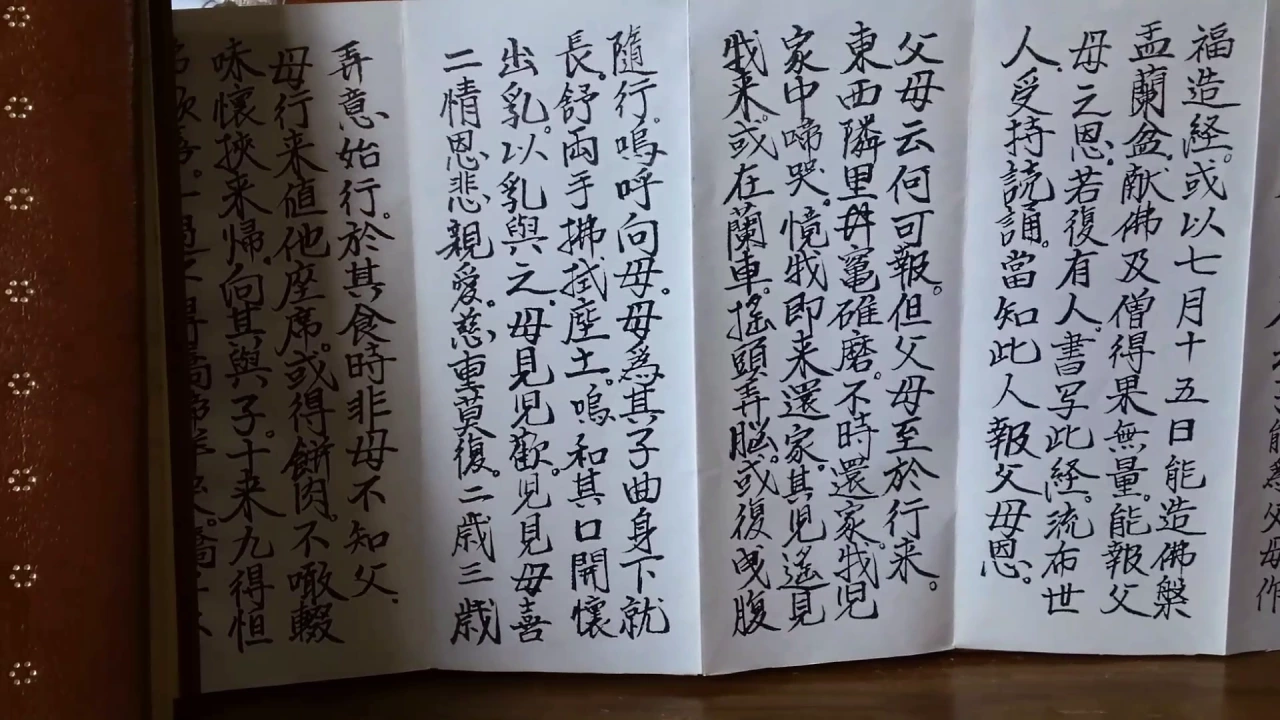 能為父母作
福造経。或以七月十五日能造佛槃
盂蘭盆、献佛及僧得果無量。能報父
母之恩。若復有人。書写此経。流布世
人、受持読誦。當知此人報父母恩。
父母云何可報。但父母至於行来。
東西隣里井竃碓磨。不時還家。我児
家中啼哭。憶我即来還家。其児遥見
我来。或在蘭車。揺頭弄脳。或復曳腹
隨行。嗚呼向母。母為其子曲身下就
長。舒両手拂拭塵土。嗚和其口開懐
出乳。以乳與之、母見児歓。児見母喜
二情恩悲親愛。慈重莫復。二歳三歳
弄意始行。於其食時非母不知父、
母行来値他座席。或得餅肉。不噉輟
味懐挾来帰、向其與子。十来九得恒